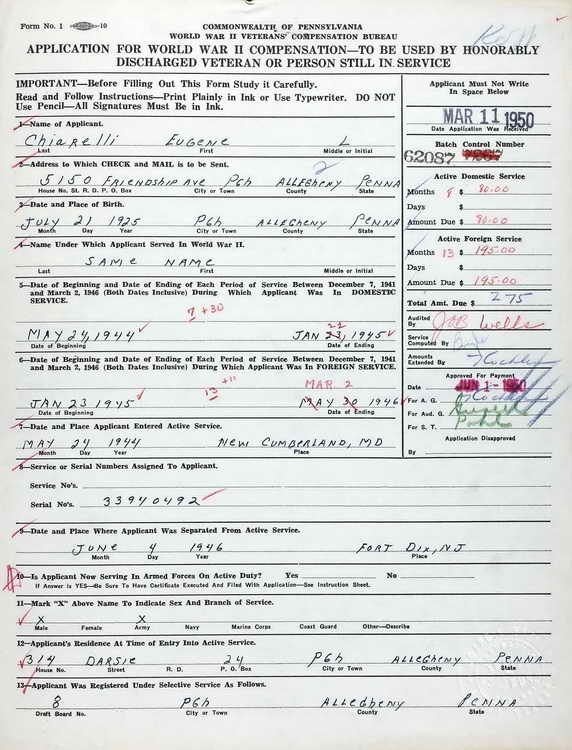 Form No. 1 -10
COMMONWEALTH OF PENNSYLVANIA
WORLD WAR II VETERANS' COMPENSATION BUREAU
APPLICATION FOR WORLD WAR II COMPENSATION—TO BE USED BY HONORABLY
DISCHARGED VETERAN OR PERSON STILL IN SERVICE
IMPORTANT—Before Filling Out This Form Study it Carefully.
Read and Follow Instructions—Print Plainly in Ink or Use Typewriter. DO NOT
Use Pencil—All Signatures Must Be in Ink.
Applicant Must Not Write
In Space Below
MAR 11 1950
Date Application Was Received
Batch Control Number
62087
1—Name of Applicant.
Chiarelli EUGENE L
Last First Middle or Initial
2—Address to Which CHECK and MAIL is to be Sent.
2
5150 FRIENDSHIP AVE PGh ALLEGHENY PENNA
House No. St. R. D. P. O. Box City or Town County State
3—Date and Place of Birth.
JULY 21 1925 PGh ALLEGHENY PENNA
Month Day Year City or Town County State
4—Name Under Which Applicant Served In World War II.
SAME NAME
Last First Middle or Initial
5—Date of Beginning and Date of Ending of Each Period of Service Between December 7, 1941
and March 2, 1946 (Both Dates Inclusive) During Which Applicant Was In DOMESTIC
SERVICE.
7 + 30
22
MAY 24, 1944 JAN 23, 1945
Date of Beginning Date of Ending
6—Date of Beginning and Date of Ending of Each Period of Service Between December 7, 1941
and March 2, 1946 (Both Dates Inclusive) During Which Applicant Was In FOREIGN SERVICE.
13 +11 MAR 2
JAN 23 1945 MAY 30 1946
Date of Beginning Date of Ending
7—Date and Place Applicant Entered Active Service.
MAY 24 1944 NEW CUMBERLAND, MD
Month Day Year Place
Active Domestic Service
Months 8 $ 80.00
Days $
Amount Due $ 80.00
Active Foreign Service
Months 13 $ 195.00
Days $
Amount Due $ 195.00
Total Amt. Due $ 275
Audited By JOB Wells
Service Computed By
Amounts Extended By
Approved For Payment
Date JUN 1 - 1950
For A. G.
For Aud. G.
For S. T.
Application Disapproved
By
8—Service or Serial Numbers Assigned To Applicant.
Service No's.
Serial No's. 33940492
9—Date and Place Where Applicant Was Separated From Active Service.
JUNE 4 1946 FORT DIX, NJ
Month Day Year Place
10—Is Applicant Now Serving In Armed Forces On Active Duty? Yes No
If Answer is YES—Be Sure To Have Certificate Executed And Filed With Application—See Instruction Sheet.
11—Mark "X" Above Name To Indicate Sex And Branch of Service.
X X
Male Female Army Navy Marine Corps Coast Guard Other—Describe
12—Applicant's Residence At Time of Entry Into Active Service.
314 DARSIE 24 PGh ALLEGHENY PENNA
House No. Street R. D. P. O. Box City or Town County State
13—Applicant Was Registered Under Selective Service As Follows.
8 PGh ALLEGHENY PENNA
Draft Board No. City or Town County State